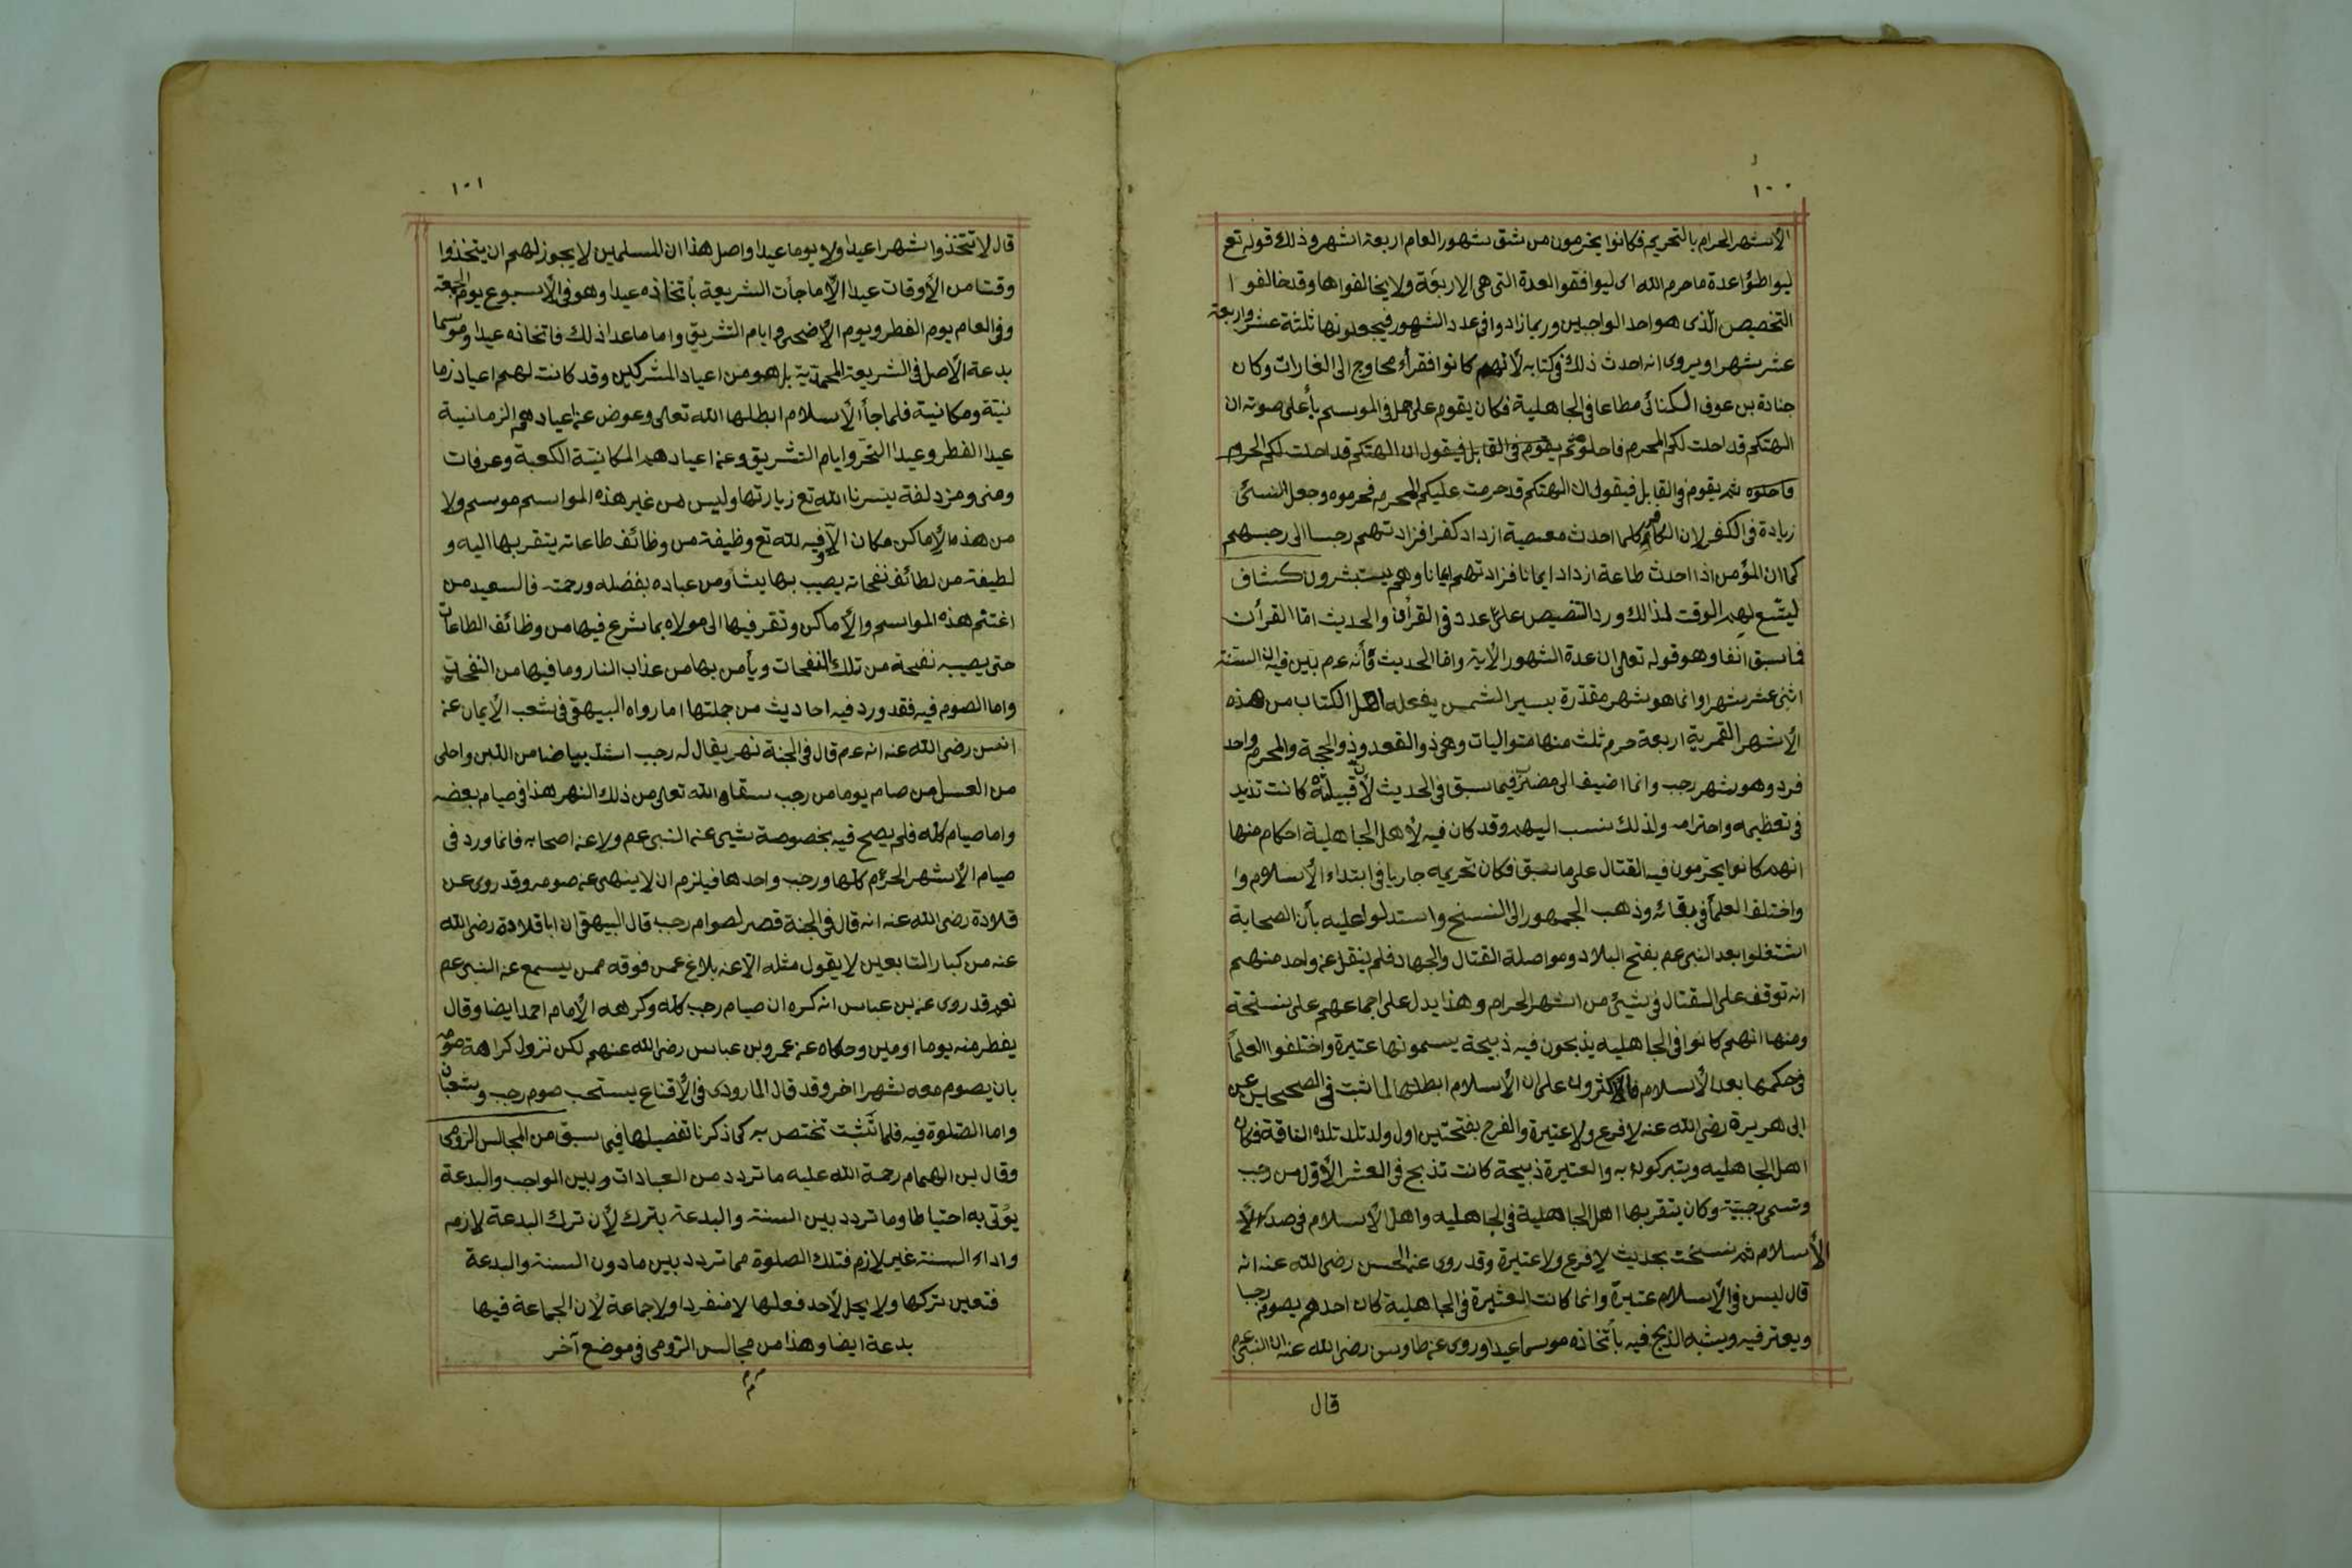 ١٠٠
الأشهر الحرام بالتحريم فكانوا يحرمون من شق شهور العام اربعة اشهر وذلك قوله تع
ليواطؤا عدة ما حرم الله اى ليوافقوا العدة التى هى الاربعة ولا يخالفوا ها وقد خالفوا
التخصيص الذى هو احد الواجبين وربما زادوا فى عدد الشهور فيجعلونها ثلثة عشر واربعة
عشر شهرا ويروى انه احدث ذلك فى كتابه لأنهم كانوا فقرأ محاويج الى الغارات وكان
جنادة بن عوف الكنانى مطاعا فى الجاهلية فكان يقوم على جمل فى الموسم بأعلى صوته ان
الهتكم قد احلت لكم المحرم فاحلوه ثم يقوم فى القابل فيقول ان الهتكم قد احلت لكم الحرام
فاحلوه ثم يقوم فى القابل فيقول ان الهتكم قد حرمت عليكم المحرم فحرموه وجعل النسئ
زيادة فى الكفر لان الكافر كلما احدث معصية ازداد كفرا فزادتهم رجسا الى رجسهم
كما ان المؤمن اذا احدث طاعة ازداد ايمانا فزادتهم ايمانا وهم يستبشرون كشاف
ليتسع لهم الوقت لذالك ورد التنصيص على عدد فى القرأن والحديث اما القرأن
فما سبق انفا وهو قوله تعالى ان عدة الشهور الأية واما الحديث فأنه عم بين فيه ان السنة
اثنى عشر شهرا وانما هو شهر مقدرة بسير الشمس يفعله اهل الكتاب من هذه
الأشهر القمرية اربعة حرم ثلث منها متواليات وهى ذو القعد وذو الحجة والمحرم وواحد
فرد وهو شهر رجب وانما اضيف الى مضر فيما سبق فى الحديث لأن قبيلته كانت تزيد
فى تعظيمه واحترامه ولذلك نسب اليهم وقد كان فيه لأهل الجاهلية احكام منها
انهم كانوا يحرمون فيه القتال على ما سبق فكان تحريمه جاريا فى ابتداء الأسلام وا
واختلف العلمأ فى بقائه وذهب الجمهور الى النسخ واستدلوا عليه بأن الصحابة
اشتغلوا بعد النبى عم بفتح البلاد ومواصلة القتال والجهاد فلم ينقل عن واحد منهم
انه توقف على القتال فى شيئ من اشهر الحرام وهذا يدل على اجماعهم على نسخة
ومنها انهم كانوا فى الجاهليه يذبحون فيه ذبيحة يسمونها عتيرة واختلفوا العلمأ
فى حكمها بعد الأسلام فالاكثرون على ان الأسلام ابطلها لما ثبت فى الصحيحين عن
ابى هريرة رضى الله عنه لا فرع ولا عتيرة والفرع بفتحتين اول ولد تلد تلده الناقة فكان
اهل الجاهليه ويتبركون به والعتيرة ذبيحة كانت تذبح فى العشر الأول من رجب
وتسمى رجبية وكان يتقرب بها اهل الجاهلية فى الجاهليه واهل الأسلام فى صدر الأ
الأسلام ثم نسخت بحديث لا فرع ولا عتيرة وقد روى عن الحسن رضى الله عنه انه
قال ليس فى الأسلام عتيرة وانما كانت العتيرة فى الجاهلية كان احدهم يصوم رجبا
ويعتر فيه ويشبه الذبح فيه بأتخاذه موسما عيدا وروى عن طاوس رضى الله عنه ان النبى عم
قال
١٠١
قال لا تتخذوا شهرا عيدا ولا يوما عيدا واصل هذا ان المسلمين لا يجوز لهم ان يتخذوا
وقتا من الأوقات عيدا الا ما جأت الشريعة بأتخاذه عيدا وهو فى الأسبوع يوم الجمعة
وفى العام يوم الفطر ويوم الأضحى وايام التشريق واما ما عدا ذلك فاتخاذه عيدا وموسما
بدعة الأصل فى الشريعة المحمدية بل هو من اعياد المشركين وقد كانت لهم اعياد زما
نية ومكانية فلما جأ الأسلام ابطلها الله تعالى وعوض عن اعيادهم الزمانية
عيد الفطر وعيد النحر وايام التشريق وعن اعيادهم المكانية الكعبة وعرفات
ومنى ومزدلفة يسرنا الله تع زيارتها وليس من غير هذه المواسم موسم ولا
من هذه الأماكن مكان الا وفيه لله تع وظيفة من وظائف طاعاته يتقرب بها اليه و
لطيفة من لطائف نفحاته يصيب بها يشأ ومن عباده بفضله ورحمته فالسعيد من
اغتنم هذه المواسم والأماكن وتقر فيها الى مولاه بما شرع فيها من وظائف الطاعات
حتى يصيبه نفحة من تلك النفحات ويأمن بها من عذاب النار وما فيها من النفحات
واما الصوم فيه فقد ورد فيه احاديث من جملتها اما رواه البيهقى فى شعب الأيمان عن
انس رضى الله عنه انه عم قال فى الجنة نهر يقال له رجب اشد بياضا من اللبن واحلى
من العسل من صام يوما من رجب سقاه الله تعالى من ذلك النهر هذا فى صيام بعضه
واما صيام كله فلم يصح فيه بخصوصة شيى عن النبى عم ولا عن اصحابه فانما ورد فى
صيام الأشهر الحرم كلها ورجب واحدها فيلزم ان لا ينهى عن صومه وقد روى عن
قلادة رضى الله عنه انه قال فى الجنة قصر لصوام رجب قال البيهقى ان ابا قلادة رضى الله
عنه من كبار التابعين لا يقول مثله الا عن بلاغ عمن فوقه ممن يسمع عن النبى عم
نعم قد روى عن بن عباس انه كره ان صيام رجب كله وكرهه الأمام احمد ايضا وقال
يفطر منه يوما اومين وحكاه عن عمر وبن عباس رضى الله عنهم لكن تزول كراهة صومه
بان يصوم معه شهرا اخر وقد قال المارودى فى الأقناع يستحب صوم رجب وشعبان
واما الصلوة فيه فلما تثبت تختص به كما ذكرنا تفصيلها فيما سبق من المجالس الرومى
وقال بن الهمام رحمة الله عليه ما تردد من العبادات وبين الواجب والبدعة
يؤتى به احتياطا وما تردد بين السنة والبدعة يترك لأن ترك البدعة لازم
واداء السنة غير لازم فتلك الصلوة مما تردد بين ما دون السنة والبدعة
فتعين تركها ولا يحل لأحد فعلها لا منفردا ولا جماعة لأن الجماعة فيها
بدعة ايضا وهذا من مجالس الرومى فى موضع آخر